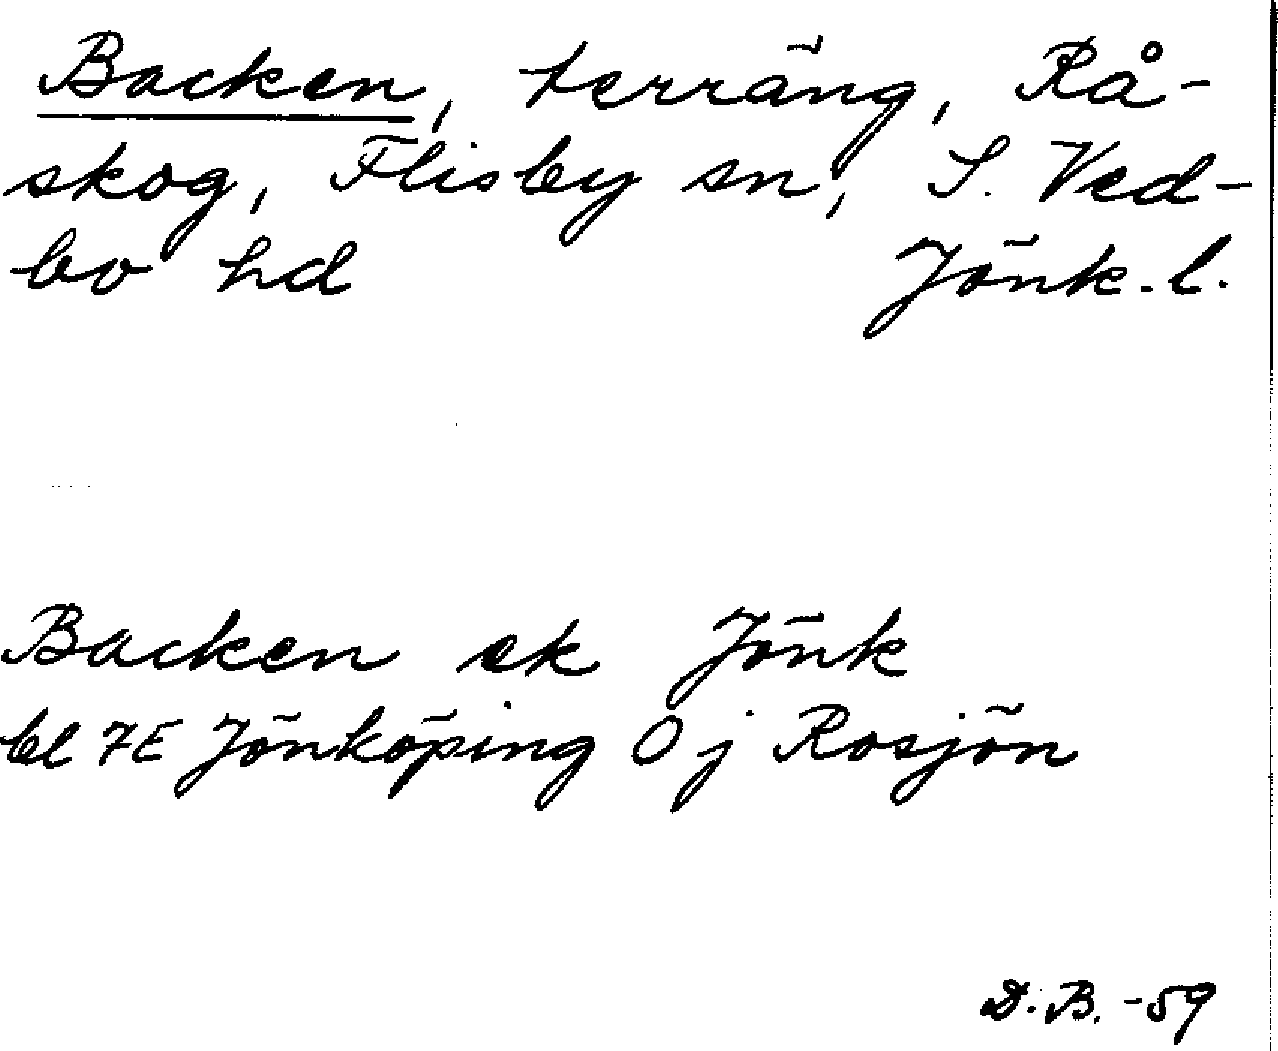 Backen, terräng, Rå-
skog, Flisby sn, S. Ved-
bo hd Jönk. l.
Backen ek Jönk
bl 7E Jönköping 0 j Rosjön
D.B. -59